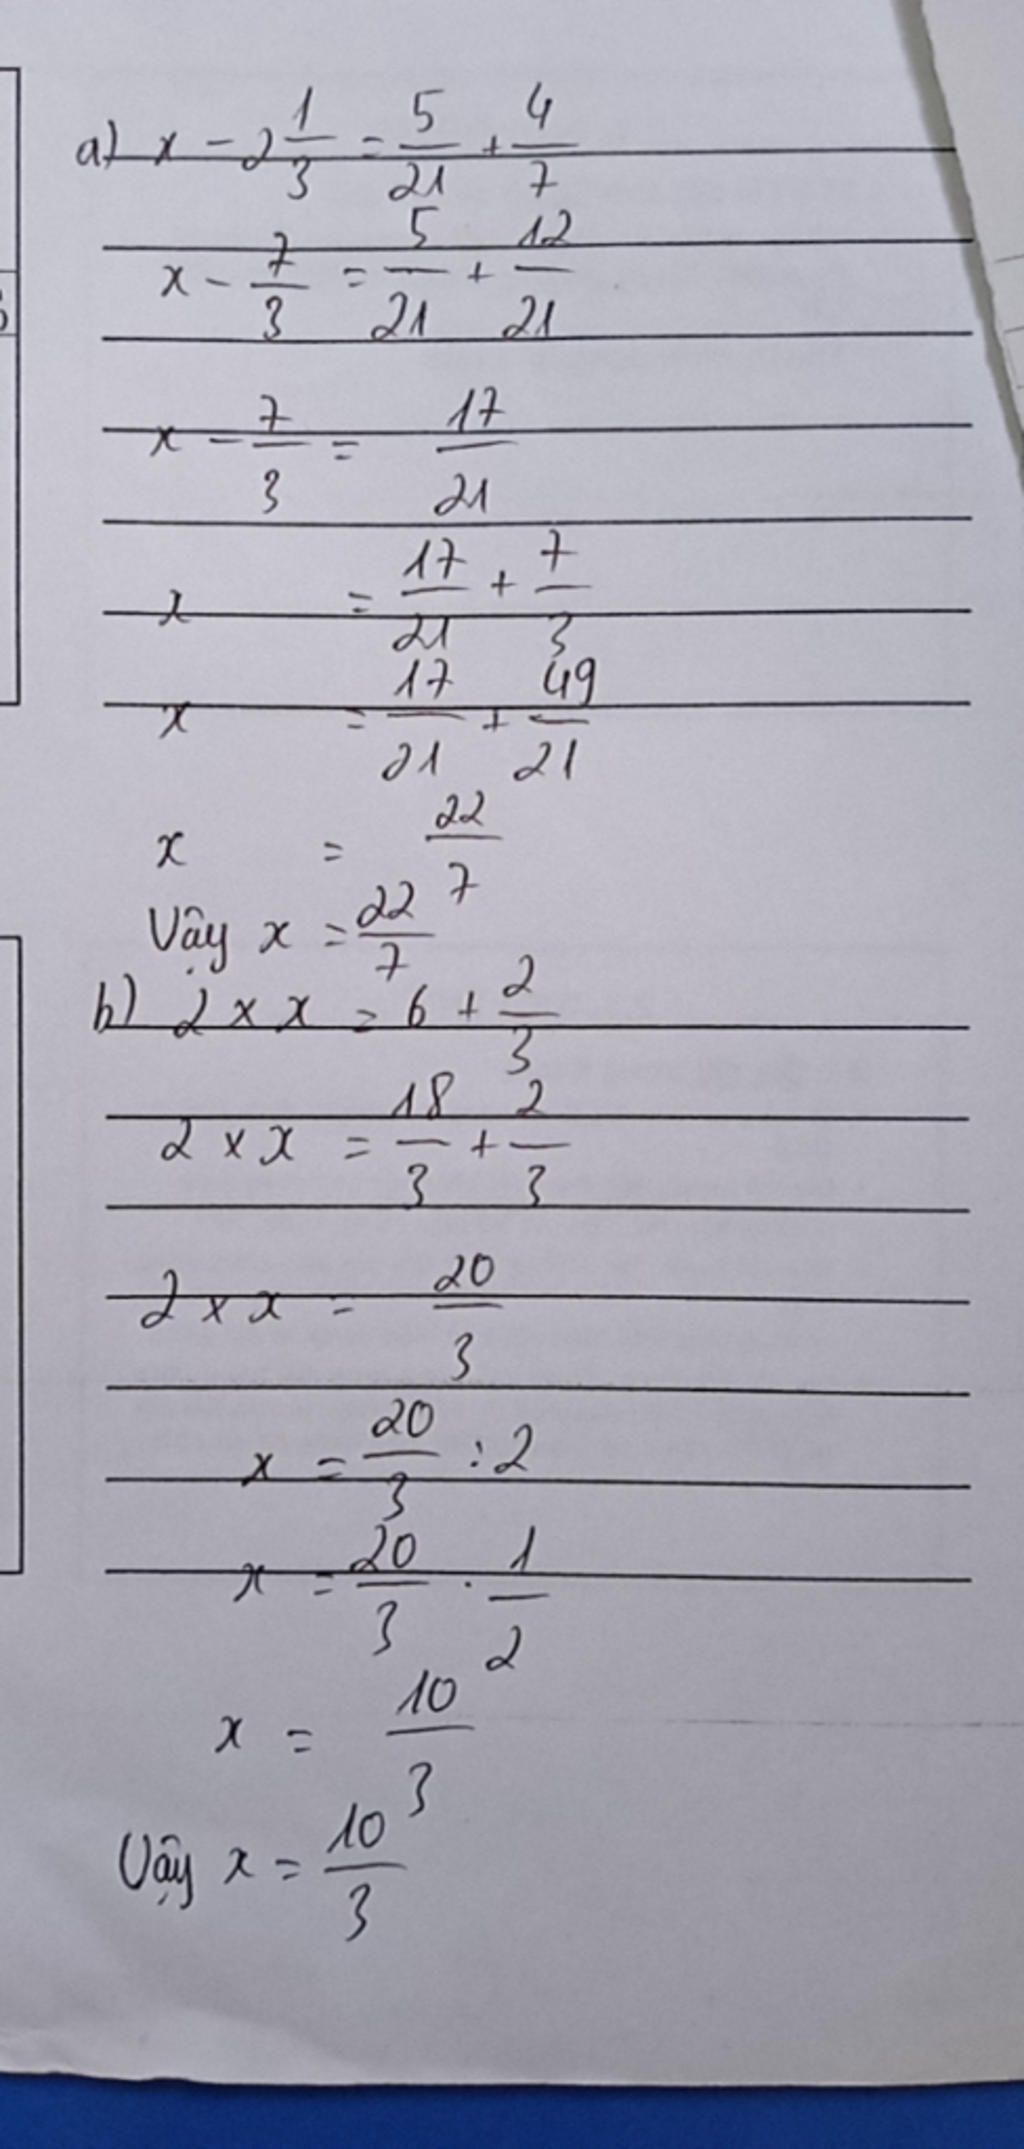 a) x - 2 1/3 = 5/21 + 4/7
x - 7/3 = 5/21 + 12/21
x - 7/3 = 17/21
x = 17/21 + 7/3
x = 17/21 + 49/21
x = 22/7
Vậy x = 22/7
b) 2 × x = 6 + 2/3
2 × x = 18/3 + 2/3
2 × x = 20/3
x = 20/3 : 2
x = 20/3 . 1/2
x = 10/3
Vậy x = 10/3